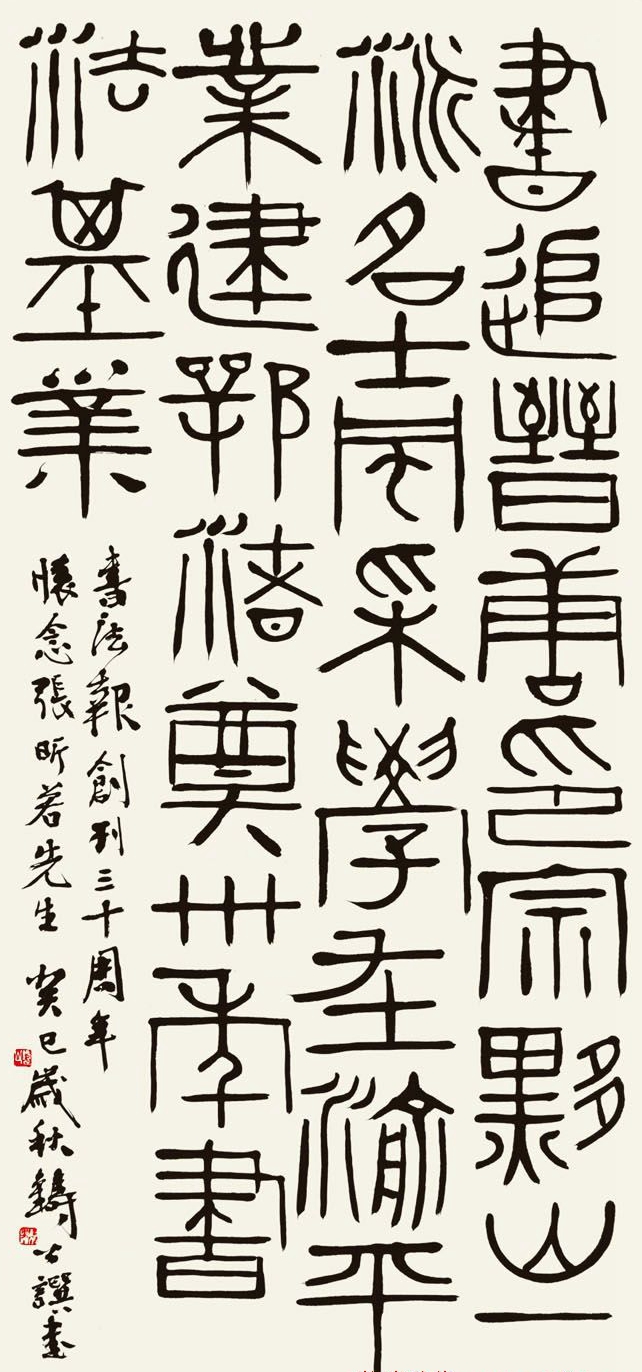 書追晉唐印宗黟山一
派名士風采學在渝平
業建鄂渚奠卅年書
法基業
書法報創刊三十周年
懷念張昕若先生 癸巳歲秋鑄公譔書